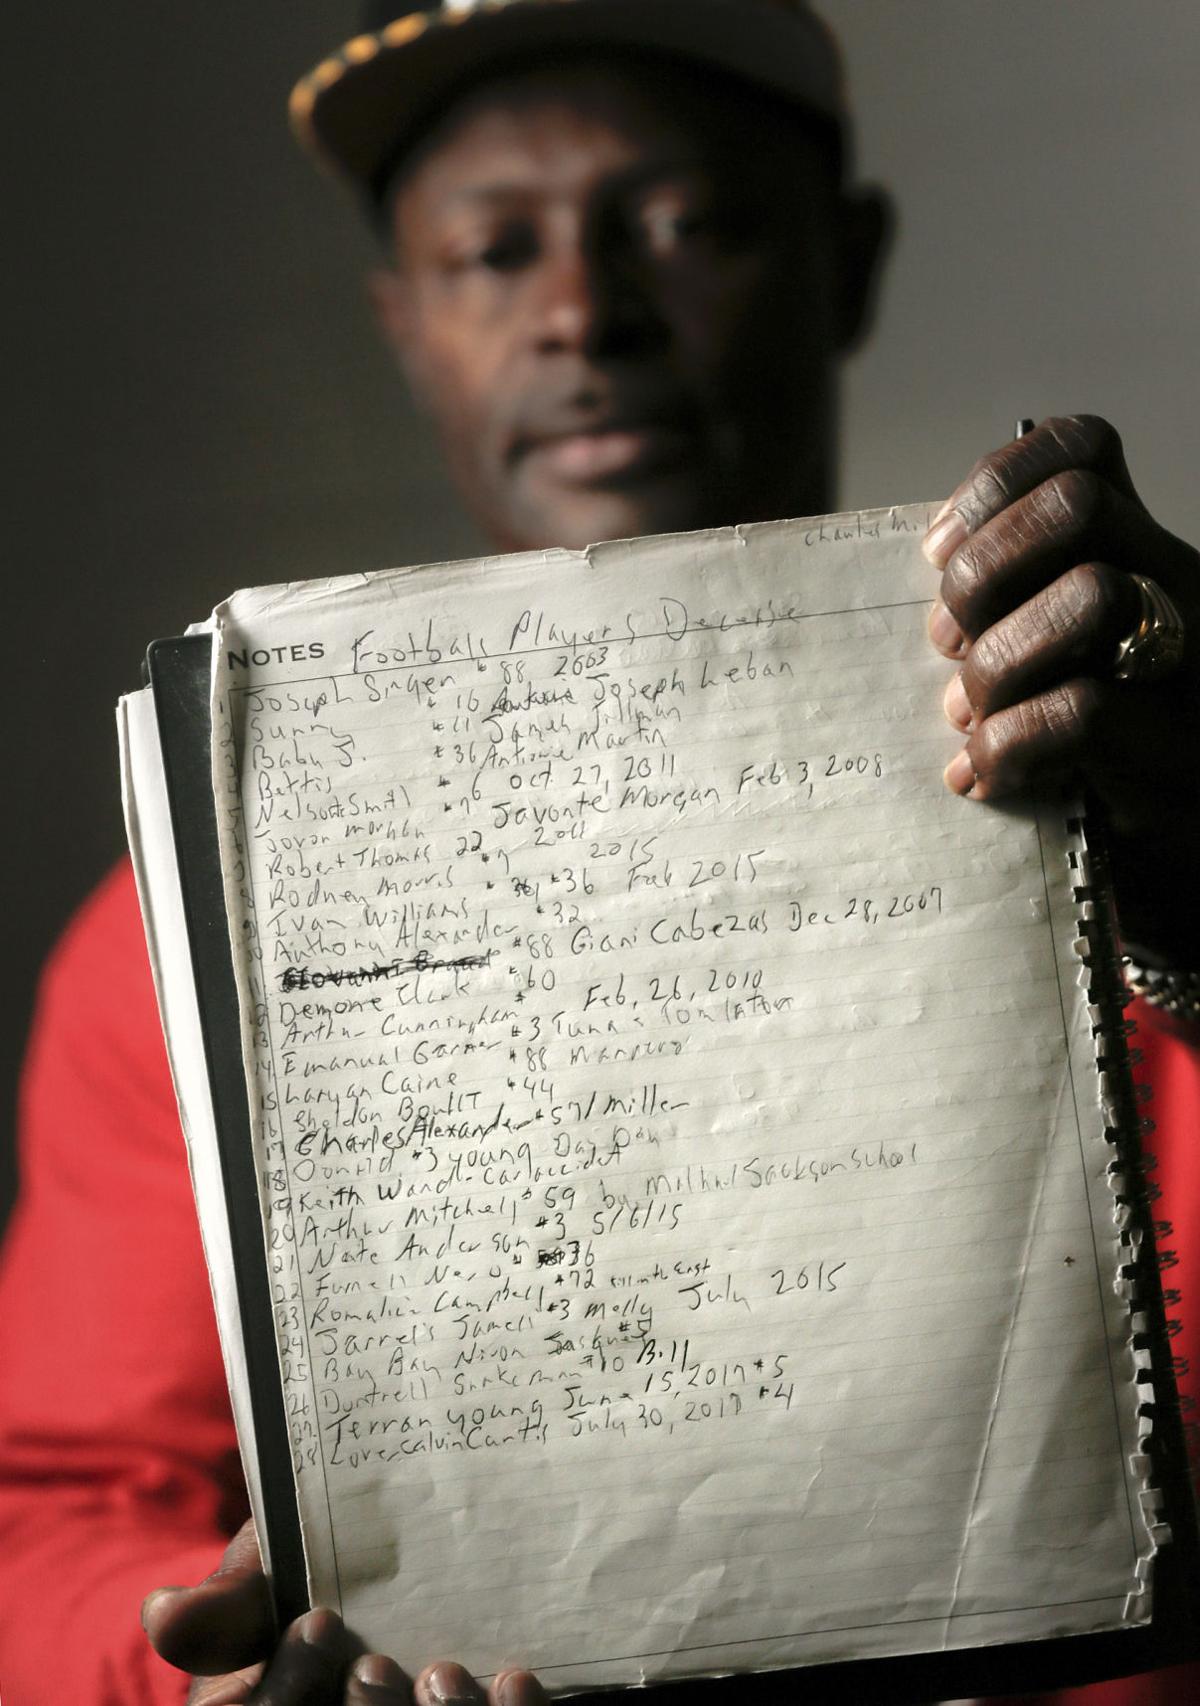 Charles Mil
NOTES Football Players Decease
1 Joseph Singen #88, 2003
Sunny #16 Antoine Joseph Leban
Baby J. #11 James Tillman
Bettis #36 Antione Martin
Nelson Smith #6 Oct 27, 2011
Jovan Morgan #76 Javonte Morgan Feb 3, 2008
Robert Thomas 22 2011
8 Rodney Morris #7 2015
9 Ivan Williams #36 Feb 2015
10 Anthony Alexander #32
11 #88 Giani Cabezas Dec 28, 2007
12 Demone Clark #60
13 Arthur Cunningham # Feb, 26, 2010
14 Emanual Garner #3 Tuna
15 Laryan Caine #88
16 Sheldon Boult #44
17 Charles Alexander #57/Miller
18 #3 young Day Day
19 Keith Ward - Car accident
20 Arthur Mitchell #59 by Jackson School
21 Nate Anderson #3 5/6/15
22 Furnell #36
23 Campbell #72 East
24 Jarrel's James #3 Melly July 2015
25 Bay Bay Nixon #5
26 Duntrell #10 Bill
27. Terran young June 15, 2017 #5
28 Love, Calvin Curtis July 30, 2017 #4